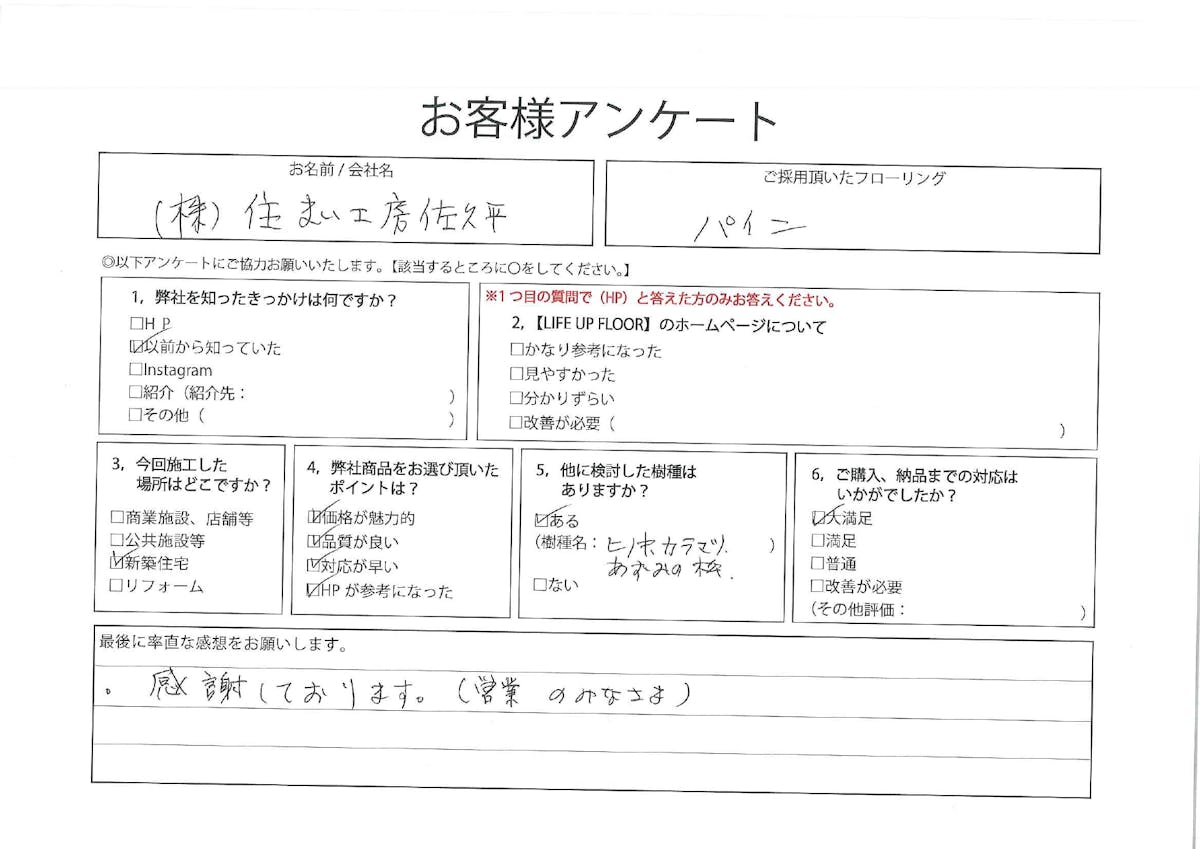 お客様アンケート
お名前 / 会社名
(株) 住まい工房佐久平
ご採用頂いたフローリング
パイン
◎以下アンケートにご協力お願いいたします。【該当するところに○をしてください。】
1，弊社を知ったきっかけは何ですか？
□ＨＰ
☑以前から知っていた
□Instagram
□紹介（紹介先：　）
□その他（　）
※1つ目の質問で（HP）と答えた方のみお答えください。
2，【LIFE UP FLOOR】のホームページについて
□かなり参考になった
□見やすかった
□分かりずらい
□改善が必要（　）
3，今回施工した
場所はどこですか？
□商業施設、店舗等
□公共施設等
☑新築住宅
□リフォーム
4，弊社商品をお選び頂いた
ポイントは？
☑価格が魅力的
☑品質が良い
☑対応が早い
☑HPが参考になった
5，他に検討した樹種は
ありますか？
☑ある
（樹種名：ヒノキ.カラマツ.）
あずみの桧.
□ない
6，ご購入、納品までの対応は
いかがでしたか？
☑大満足
□満足
□普通
□改善が必要
（その他評価：　）
最後に率直な感想をお願いします。
。感謝しております。(営業のみなさま)